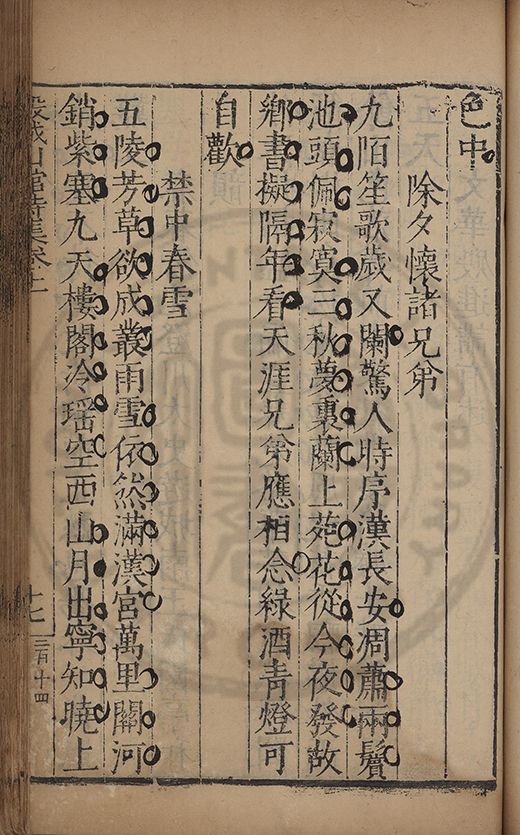 色中
除夕懷諸兄弟
九陌笙歌歲又闌驚人時序漢長安凋蕭兩鬢
池頭佩寂寞三秋夢裏蘭上苑花從今夜發故
鄉書擬隔年看天涯兄弟應相念綠酒青燈可
自歡
禁中春雪
五陵芳草欲成叢雨雪依然滿漢宮萬里關河
銷紫塞九天樓閣冷瑶空西山月出寧知曉上
穀城山館詩集卷十一
十七
三百十四